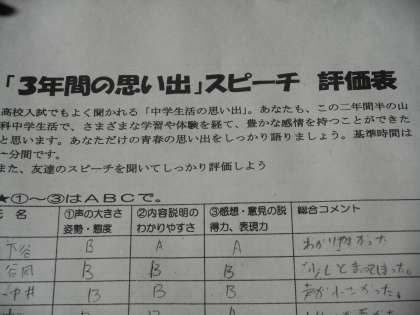 「３年間の思い出」スピーチ 評価表
高校入試でもよく聞かれる「中学生活の思い出」。あなたも、この二年間半の山
科中学生活で、さまざまな学習や体験を経て、豊かな感情を持つことができた
と思います。あなただけの青春の思い出をしっかり語りましょう。基準時間は
～分間です。
また、友達のスピーチを聞いてしっかり評価しよう
★①～③はＡＢＣで。
氏 名 ①声の大きさ 姿勢・態度 ②内容説明の わかりやすさ ③感想・意見の説 得力、表現力 総合コメント
下谷 B A A わかりやすかった
谷岡 B B B 少し止まってしまった。
中井 B B B